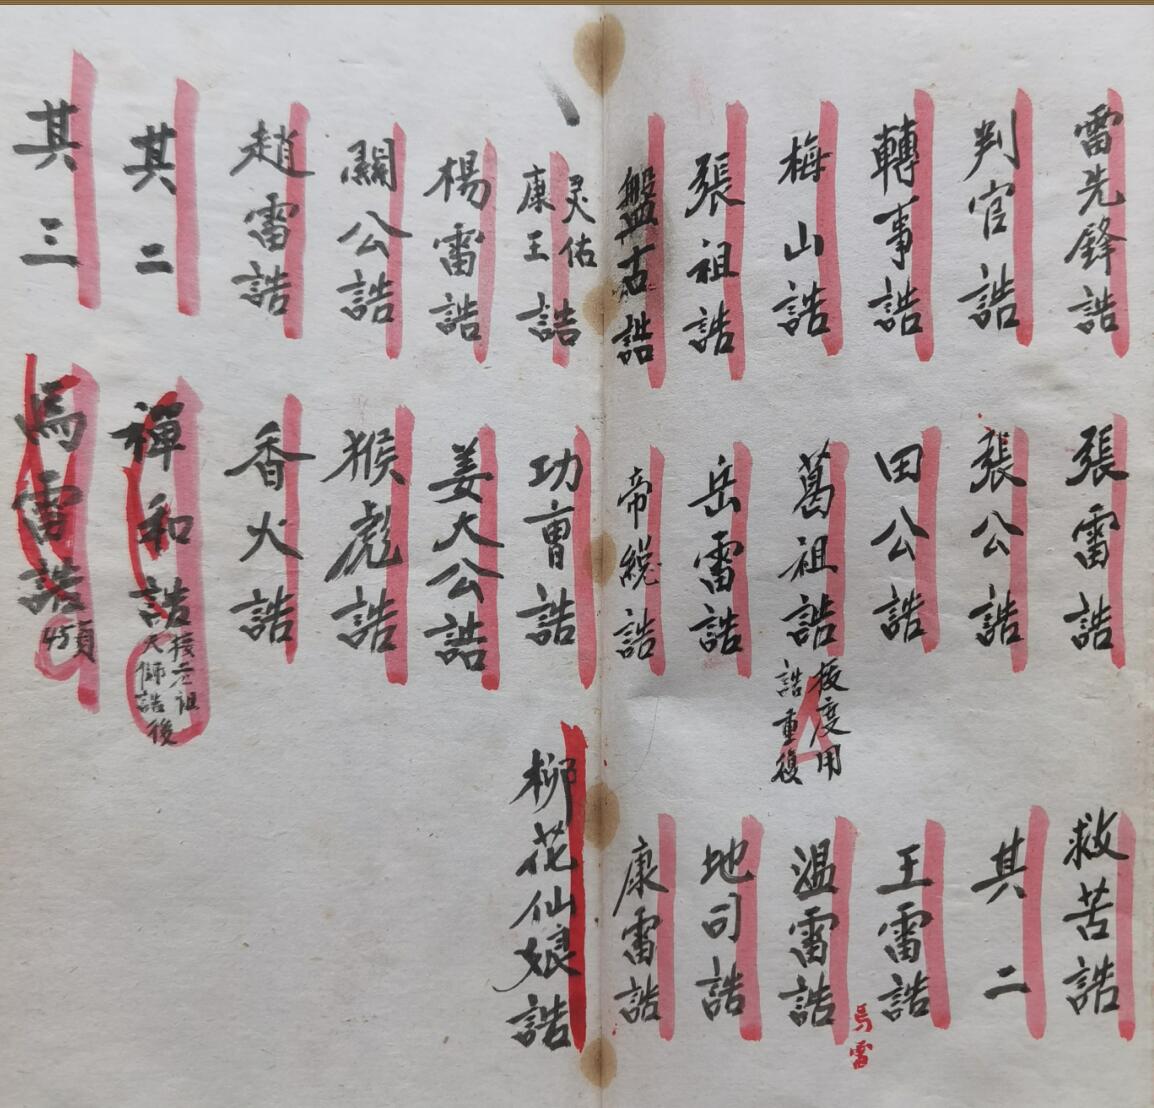 雷先鋒誥
判官誥
轉事誥
梅山誥
張祖誥
盤古誥
張雷誥
張公誥
田公誥
葛祖誥
度用
誥重復
岳雷誥
帝誥
救苦誥
其二
王雷誥
馬雷
溫雷誥
地司誥
康雷誥
灵佑
康王誥
楊雷誥
關公誥
趙雷誥
其二
其三
功曹誥
姜太公誥
猴彪誥
香火誥
禪和誥
接老祖
天師誥後
馬雷誥
45頁
柳花仙娘誥